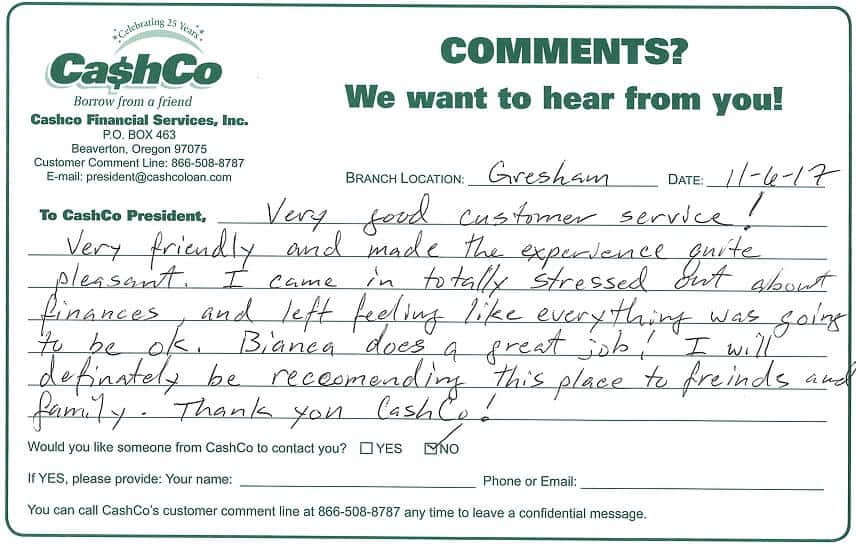 Celebrating 25 Years
Ca$hCo
Borrow from a friend
Cashco Financial Services, Inc.
P.O. BOX 463
Beaverton, Oregon 97075
Customer Comment Line: 866-508-8787
E-mail: president@cashcoloan.com
COMMENTS?
We want to hear from you!
BRANCH LOCATION: Gresham DATE: 11-6-17
To CashCo President, Very good customer service!
Very friendly and made the experience quite
pleasant. I came in totally stressed out about
finances, and left feeling like everything was going
to be ok. Bianca does a great job! I will
definately be reccomending this place to freinds and
family. Thank you CashCo!
Would you like someone from CashCo to contact you? YES NO
If YES, please provide: Your name: Phone or Email:
You can call CashCo's customer comment line at 866-508-8787 any time to leave a confidential message.